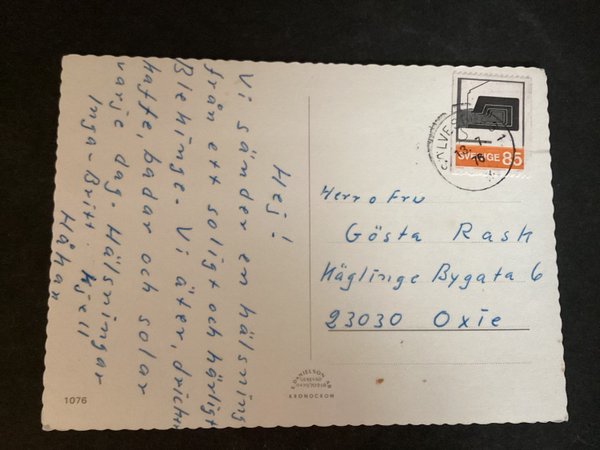 Hej!
Vi sänder en hälsning
från ett soligt och härligt
Blekinge. Vi äter, dricker
kaffe, badar och solar
varje dag. Hälsningar
Inga-Britt. Kjell
Håkan
SVERIGE 85
Herr o Fru
Gösta Rask
Käglinge Bygata 6
23030 Oxie
KRONOCROM
1076